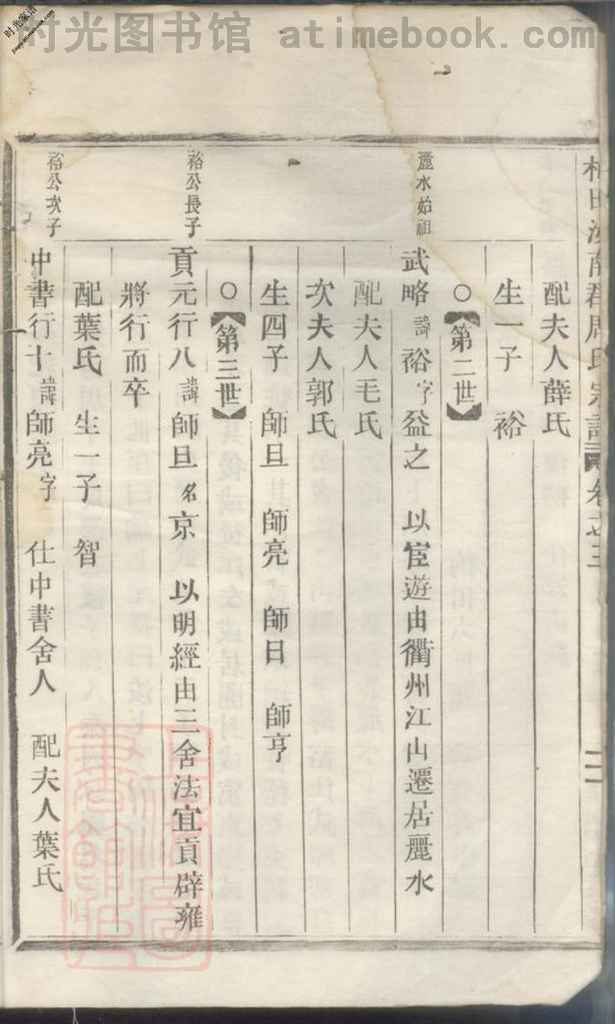 时光图书馆 atimebook.com
配夫人薛氏
生一子 裕
○【第二世】
麗水始祖
武略 諱 裕 字 益之 以宦遊由衢州江山遷居麗水
配夫人毛氏
次夫人郭氏
生四子 師旦 師亮 師日 師亨
○【第三世】
裕公長子
貢元行八 諱 師旦 名 京 以明經由三舍法宜貢辟雍
將行而卒
配葉氏 生一子 智
裕公次子
中書行十 諱 師亮 字 仕中書舍人 配夫人葉氏